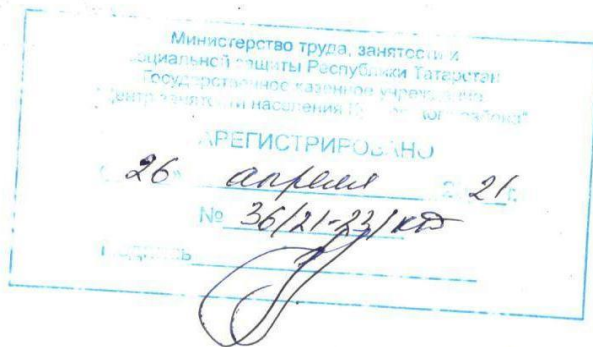 Министерство труда, занятости и
социальной защиты Республики Татарстан
Государственное казенное учреждение
"Центр занятости населения района"
ЗАРЕГИСТРИРОВАНО
"26" апреля 2021г.
№ 36/21-23/КД
Подпись